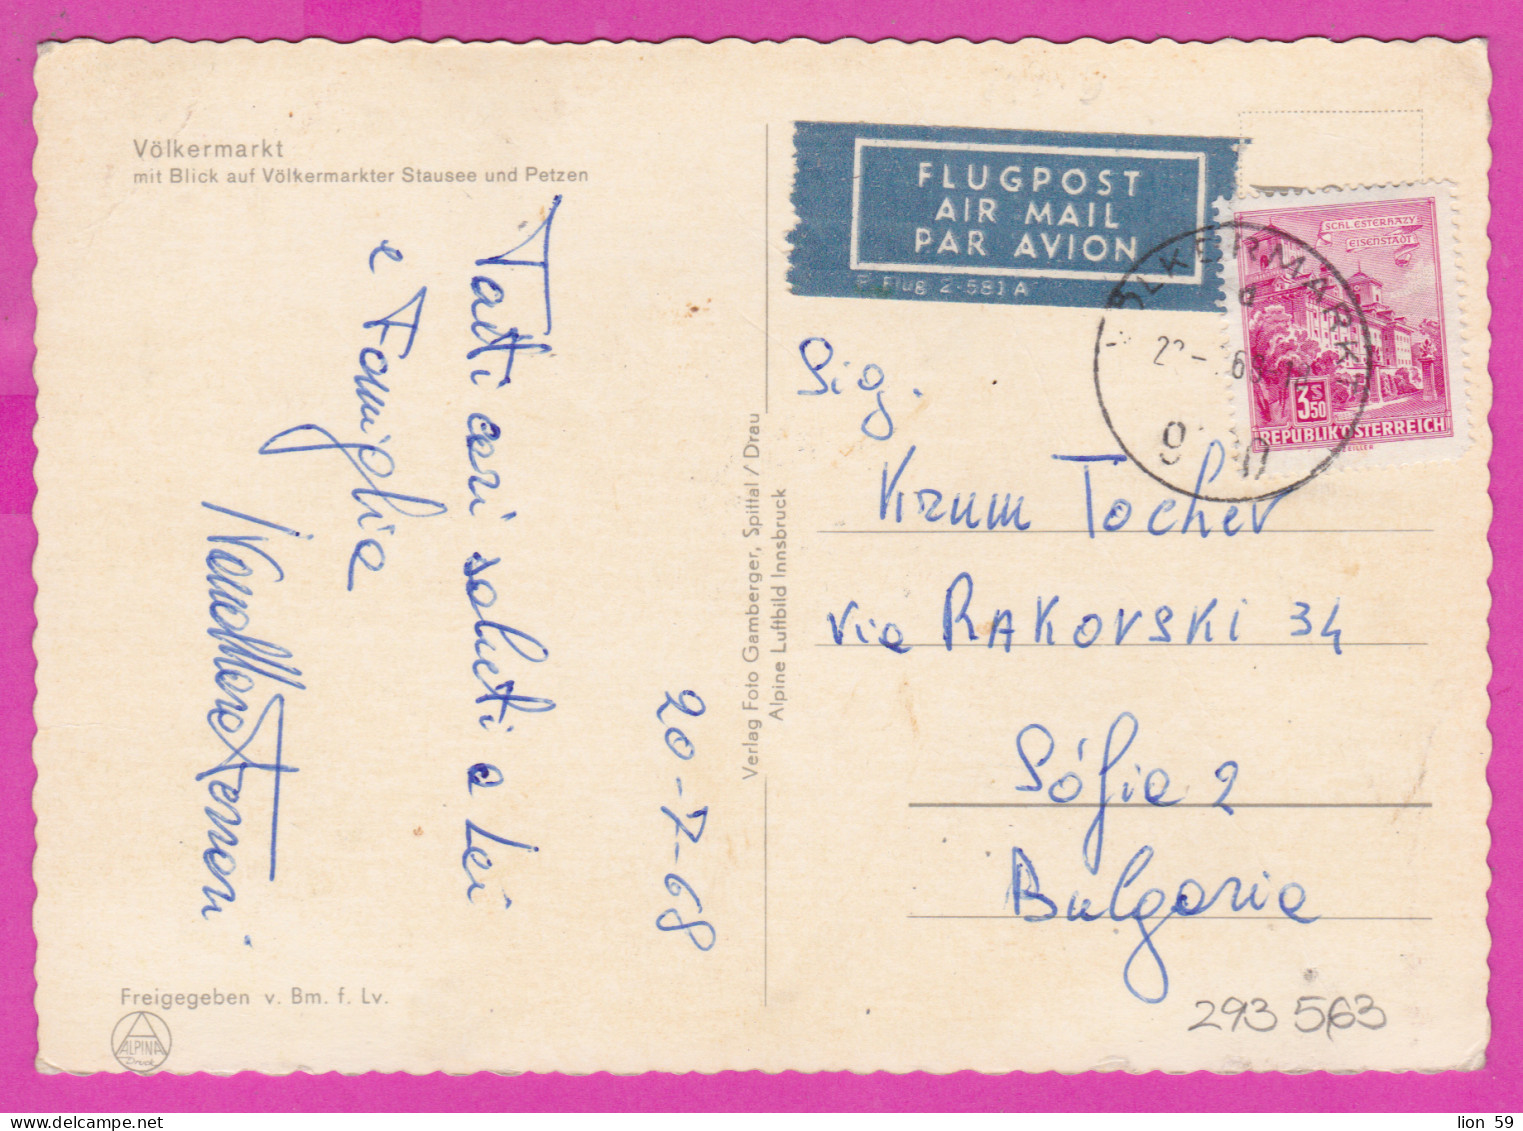 Völkermarkt
mit Blick auf Völkermarkter Stausee und Petzen
Tanti cari saluti a Lei
e Famiglia
20-7-68
Freigegeben v. Bm. f. Lv.
ALPINA
Druck
Verlag Foto Gamberger, Spittal / Drau
Alpine Luftbild Innsbruck
FLUGPOST
AIR MAIL
PAR AVION
F. Flug 2-581 A
SCHL. ESTERHAZY
EISENSTADT
3S
50
REPUBLIK ÖSTERREICH
ÖLKERMARKT
Sig.
Krum Tochev
via RAKOVSKI 34
Sófia 2
Bulgaria
293 563
lion 59